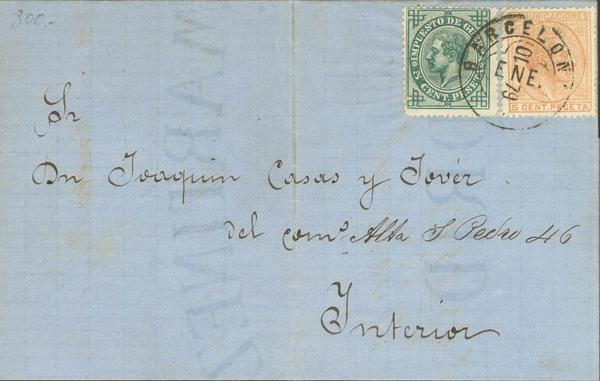 300.-
IMPUESTO DE GUERRA
5 CENT. PESETA
5 CENT. PESETA
BARCELONA
10
ENE.
79
Sr
Dn Joaquin Casas y Jovér
del comº Alta S Pedro 46
Interior